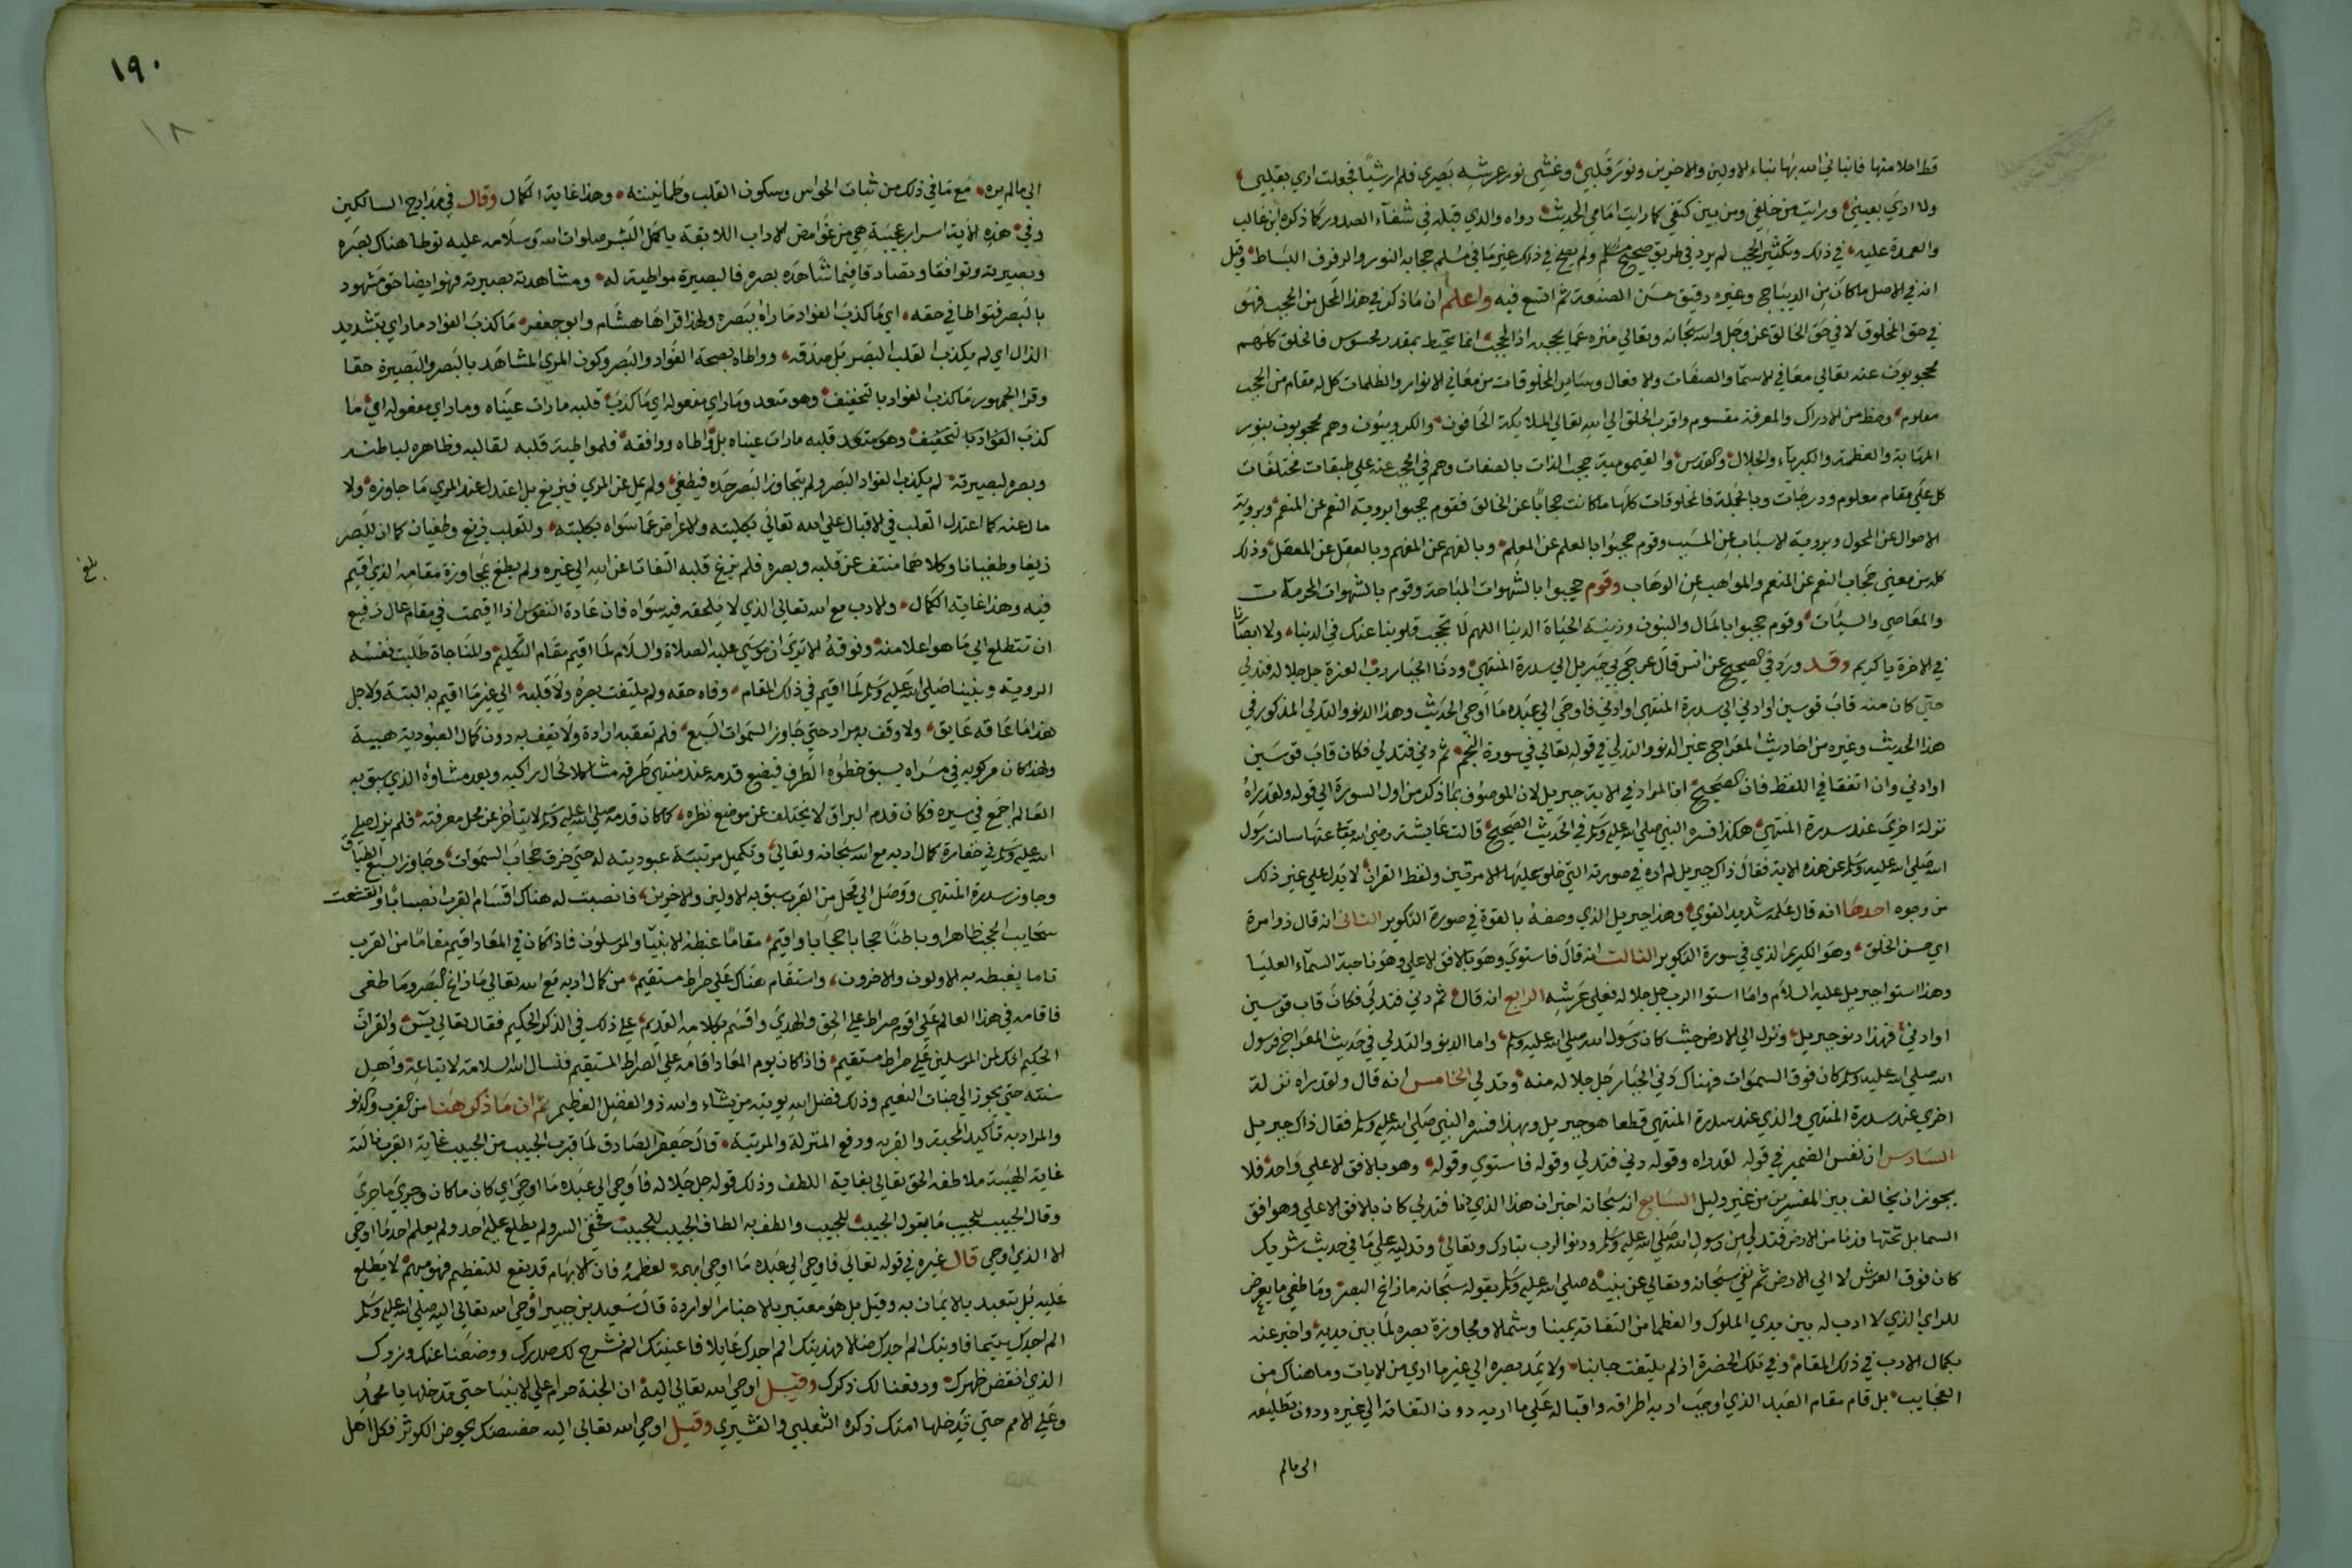 قط احلا منها فانباني الله بها نباء الاولين والاخرين ونور قلبي وغشي نور عرشه بصري فلم ار شيئا فجعلت اري بقلبي
ولا اري بعيني ورايت من خلفي ومن بين كتفي كما رايت امامي الحديث رواه والذي قبله في شفاء الصدور كما ذكره ابن غالب
والعمدة عليه في ذلك وتكثير الحجب لم يرد في طريق صحيح ولم يصح في ذلك غير ما في مسلم حجابه النور والرفرف البساط وقيل
انه في الاصل ما كان من الديباج وغيره رقيق حسن الصنعة ثم اتسع فيه واعلم ان ما ذكر في هذا المحل من الحجب فهو
في حق المخلوق لا في حق الخالق عز وجل والله سبحانه وتعالي منزه عما يحجبه اذ الحجب انما تحيط بمقدر محسوس فالخلق كلهم
محجوبون عنه تعالي معاني الاسما والصفات والافعال وساير المخلوقات من معاني الانوار والظلمات كل له مقام من الحجب
معلوم وحظ من الادراك والمعرفة مقسوم واقرب الخلق الي الله تعالي الملايكة الحافون والكروبيون وهم محجوبون بنور
المهابة والعظمة والكبرياء والجلال والقدس والقيومية حجب الذات بالصفات وهم في الحجب عنه علي طبقات مختلفات
كل علي مقام معلوم ودرجات وبالجملة فالمخلوقات كلها ما كانت حجابا عن الخالق فقوم حجبوا بروية النعم عن المنعم وبروية
الاحوال عن المحول وبروية الاسباب عن المسبب وقوم حجبوا بالعلم عن المعلم وبالفهم عن المفهم وبالعقل عن المعقل وذلك
كله من معني حجاب النعم عن المنعم والمواهب عن الوهاب وقوم حجبوا بالشهوات المباحة وقوم بالشهوات المحرمات
والمعاصي والسيات وقوم حجبوا بالمال والبنون وزينة الحياة الدنيا اللهم لا تحجب قلوبنا عنك في الدنيا ولا ابصارنا
في الاخرة يا كريم وقد ورد في الصحيح عن انس قال عرج بي جبريل الي سدرة المنتهي ودنا الجبار رب العزة جل جلاله فتدلي
حتي كان منه قاب قوسين او ادني الي سدرة المنتهي فاوحي الي عبده ما اوحي الحديث وهذا الدنو والتدلي المذكور في
هذا الحديث وغيره من احاديث المعراج غير الدنو والتدلي في قوله تعالي في سورة النجم ثم دني فتدلي فكان قاب قوسين
او ادني وان اتفقا في اللفظ فان الصحيح ان المراد في الاية جبريل لان الموصوف بما ذكر من اول السورة الي قوله ولقد راه
نزلة اخري عند سدرة المنتهي هكذا فسره النبي صلي الله عليه وسلم في الحديث الصحيح قالت عايشة رضي الله تعالي عنها سالت رسول
الله صلي الله عليه وسلم عن هذه الاية فقال ذاك جبريل لم اره في صورته التي خلق عليها الا مرتين ولفظ القران لا يدل علي غير ذلك
من وجوه احدها انه قال علمه شديد القوي وهذا جبريل الذي وصفه بالقوة في صورة التكوير الثاني انه قال ذو مرة
اي حسن الخلق وهو الكريم الذي في سورة التكوير الثالث انه قال فاستوي وهو بالافق الاعلي وهو ناحية السماء العليا
وهذا استوا جبريل عليه السلام واما استوا الرب جل جلاله فعلي عرشه الرابع انه قال ثم دني فتدلي فكان قاب قوسين
او ادني فهذا دنو جبريل ونزل الي الارض حيث كان رسول الله صلي الله عليه وسلم واما الدنو والتدلي في حديث المعراج فرسول
الله صلي الله عليه وسلم كان فوق السموات فهناك دني الجبار جل جلاله منه وتدلي الخامس انه قال ولقد راه نزلة
اخري عند سدرة المنتهي والذي عند سدرة المنتهي قطعا هو جبريل وبهذا فسره النبي صلي الله عليه وسلم فقال ذاك جبريل
السادس ان نفس الضمير في قوله لقد راه وقوله دني فتدلي وقوله فاستوي وقوله وهو بالافق الاعلي واحد فلا
يجوز ان يخالف بين المفسرين من غير دليل السابع انه سبحانه اخبر ان هذا الذي دنا فتدلي كان بالافق الاعلي وهو افق
السما بل تحتها فدنا من الارض فتدلي من رسول الله صلي الله عليه وسلم ودنو الرب تبارك وتعالي وتدليه علي ما في حديث شريك
كان فوق العرش لا الي الارض ثم نفي سبحانه وتعالي عن نبيه صلي الله عليه وسلم بقوله سبحانه ما زاغ البصر وما طغي ما يعرض
للراي الذي لا ادب له بين يدي الملوك والعظما من التفاته يمينا وشملا ومجاوزة بصره لما بين يديه واخبر عنه
بكمال الادب في ذلك المقام وفي تلك الحضرة اذ لم يلتفت جانبا ولا يمد بصره الي غير ما اري من الايات وما هناك من
العجايب بل قام مقام العبد الذي اوجب ادبه اطراقه واقباله علي ما اريه دون التفاته الي غيره ودون تطلعه
الي ما لم
١٩٠
١٨٠
الي ما لم يره مع ما في ذلك من ثبات الحواس وسكون القلب وطمانينته وهذا غاية الكمال وقال في مدارج السالكين
وفي هذه الاية اسرار عجيبة هي من غوامض الاداب اللايقة باكمل البشر صلوات الله وسلامه عليه توطا هناك بصره
وبصيرته وتوافقا وتصادقا فيما شاهده بصره فالبصيرة مواطية له ومشاهدته بصيرته فهو ايضا حق مشهود
بالبصر فتواطا في حقه اي ما كذب الفواد ما راه ببصره ولهذا قراها هشام وابو جعفر ما كذب الفواد ما راي بتشديد
الذال اي لم يكذب القلب البصر بل صدقه وواطاه بصحة الفواد والبصر وكون المري المشاهد بالبصر والبصيرة حقا
وقرا الجمهور ما كذب الفواد بالتخفيف وهو متعد وما راي مفعوله اي ما كذب قلبه ما رات عيناه وما راي مفعوله اي ما
كذب الفواد بالتخفيف وهو متعد قلبه ما رات عيناه بل واطاه ووافقه فلمواطية قلبه لقالبه وظاهره لباطنه
وبصره لبصيرته لم يكذب الفواد البصر ولم يتجاوز البصر حده فيطغي ولم يمل عن المري فيزيغ بل اعتدل عند المري ما جاوزه ولا
مال عنه كما اعتدل القلب في الاقبال علي الله تعالي بكليته والاعراض عما سواه بكليته وللقلب زيغ وطغيان كما ان للبصر
زيغا وطغيانا وكلاهما منتف عن قلبه وبصره فلم يزغ قلبه التفاتا عن الله الي غيره ولم يطغ بمجاوزة مقامه الذي اقيم
بلغ
فيه وهذا غاية الكمال والادب مع الله تعالي الذي لا يلحقه فيه سواه فان عادة النفوس اذا اقيمت في مقام عال رفيع
ان تتطلع الي ما هو اعلا منه وفوقه الا تري ان موسي عليه الصلاة والسلام لما اقيم مقام التكليم والمناجاة طلبت نفسه
الروية ونبينا صلي الله عليه وسلم لما اقيم في ذلك المقام وفاه حقه ولم يلتفت بصره ولا قلبه الي غير ما اقيم به البتة ولاجل
هذا ما عاقه عايق ولا وقف به مراد حتي جاوز السموات السبع فلم تعقبه ارادة ولا تقف به دون كمال العبودية هيبة
ولهذا كان مركوبه في مسراه يسبق خطوه الطرف فيضع قدمه عند منتهي طرفه مشاكلا لحال راكبه وبعد مشاوه الذي سبق به
العالم اجمع في سيره فكان قدم البراق لا يختلف عن موضع نظره كما كان قدمه صلي الله عليه وسلم لا يتاخر عن محل معرفته فلم يزل صلي
الله عليه وسلم في خفارة كمال ادبه مع الله سبحانه وتعالي وتكميل مرتبة عبوديته له حتي خرق حجاب السموات وجاوز السبع الطباق
وجاوز سدرة المنتهي ووصل الي محل من القرب سبق به الاولين والاخرين فانصبت له هناك اقسام القرب انصبابا وانقشعت
سحايب الحجب ظاهرا وباطنا حجابا حجابا واقيم مقاما غبطه الانبيا والمرسلون فاذا كان في المعاد اقيم مقاما من القرب
تاما يغبطه به الاولون والاخرون واستقام هناك علي صراط مستقيم من كمال ادبه مع الله تعالي ما زاغ البصر وما طغي
فاقامه في هذا العالم علي اقوم صراط علي الحق والهدي واقسم بكلامه القديم علي ذلك في الذكر الحكيم فقال تعالي يس والقران
الحكيم انك لمن المرسلين علي صراط مستقيم فاذا كان يوم المعاد اقامه علي الصراط المستقيم فنسال الله السلامة لاتباعه واهل
سنته حتي يجوز الي جنات النعيم وذلك فضل الله يوتيه من يشاء والله ذو الفضل العظيم ثم ان ما ذكر هنا من القرب والدنو
والمراد به تاكيد المحبة والقربه ورفع المنزلة والمرتبة قال جعفر الصادق لما قرب الحبيب من الحبيب غاية القرب نالته
غاية الهيبة ملاطفه الحق تعالي بغاية اللطف وذلك قوله جل جلاله فاوحي الي عبده ما اوحي اي كان ما كان وجري ما جري
وقال الحبيب للحبيب ما يقول الحبيب للحبيب والطف به الطاف الحبيب للحبيب فخفي السر ولم يطلع عليه احد ولم يعلم احد ما اوحي
الا الذي اوحي قال غيره في قوله تعالي فاوحي الي عبده ما اوحي ابهمه لعظمه فان الابهام قد يقع للتعظيم فهو مبهم لا يطلع
عليه بل يتعبد بالايمان به وقيل بل هو معتبر بالاخبار الواردة قال سعيد بن جبير اوحي الله تعالي اليه صلي الله عليه وسلم
الم اجدك يتيما فاويتك الم اجدك ضالا فهديتك الم اجدك عايلا فاغنيتك الم نشرح لك صدرك ووضعنا عنك وزرك
الذي انقض ظهرك ورفعنا لك ذكرك وقيل اوحي الله تعالي اليه ان الجنة حرام علي الانبيا حتي تدخلها يا محمد
وعلي الامم حتي تدخلها امتك ذكره الثعلبي والقشيري وقيل اوحي الله تعالي اليه خصصتك بحوض الكوثر فكل اهل